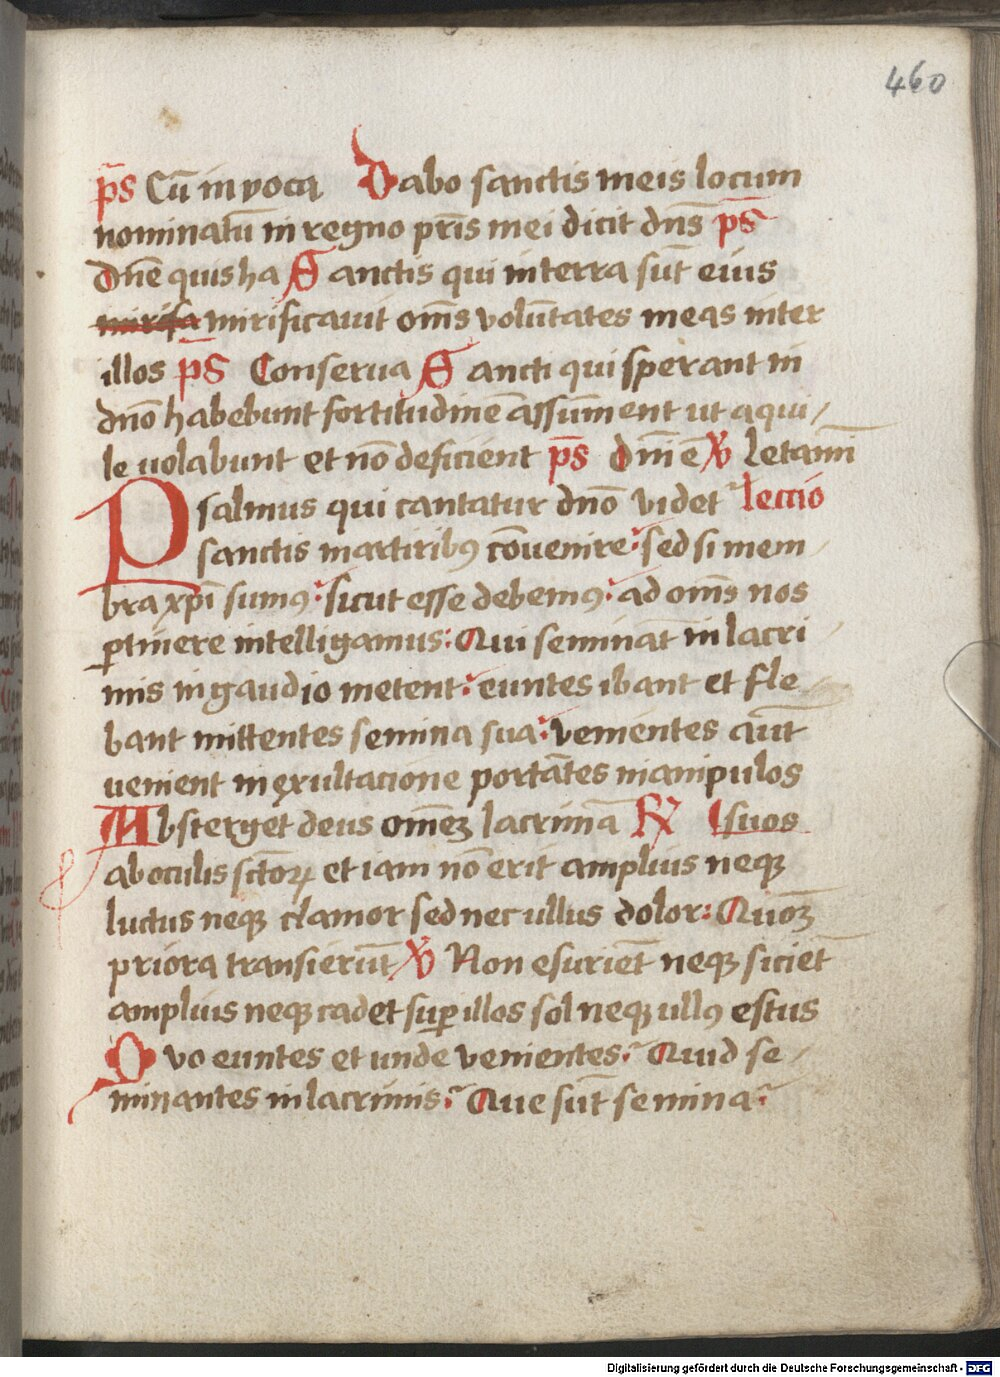 460
p̄s Cū invoca Dabo sanctis meis locum
nominatū in regno pr̄is mei dicit dn̄s p̄s
Dn̄e quis ha Sanctis qui in terra sūt eius
mirifa mirificavit om̄s volūtates meas inter
illos p̄s Conserva Sancti qui sperant in
dn̄o habebunt fortitudinē assument ut aqui/
le volabunt et nō deficient p̄s Dn̄i ē ℣ letami
Psalmus qui cantatur dn̄o videt lectio
sanctis martiribꝫ cōvenire: sed si mem
bra xp̄i sumꝰ: sicut esse debemꝰ: ad om̄s nos
ꝑtinere intelligamus: Qui seminat̄ in lacri
mis in gaudio metent: euntes ibant et fle
bant mittentes semina sua: venientes aūt
venient in exultacione portātes manipulos
Absterget deus omēꝫ lacrimā ℞ suos
ab oculis sctōꝝ et iam nō erit amplius neqꝫ
luctus neqꝫ clamor sed nec ullus dolor: Quoꝫ
priora transierūt ℣ Non esuriēt neqꝫ siciēt
amplius neqꝫ cadet suꝑ illos sol neqꝫ ullꝰ estus
Quo euntes et unde venientes: Quid se/
minantes in lacrimis: Que sūt semina:
Digitalisierung gefördert durch die Deutsche Forschungsgemeinschaft - DFG